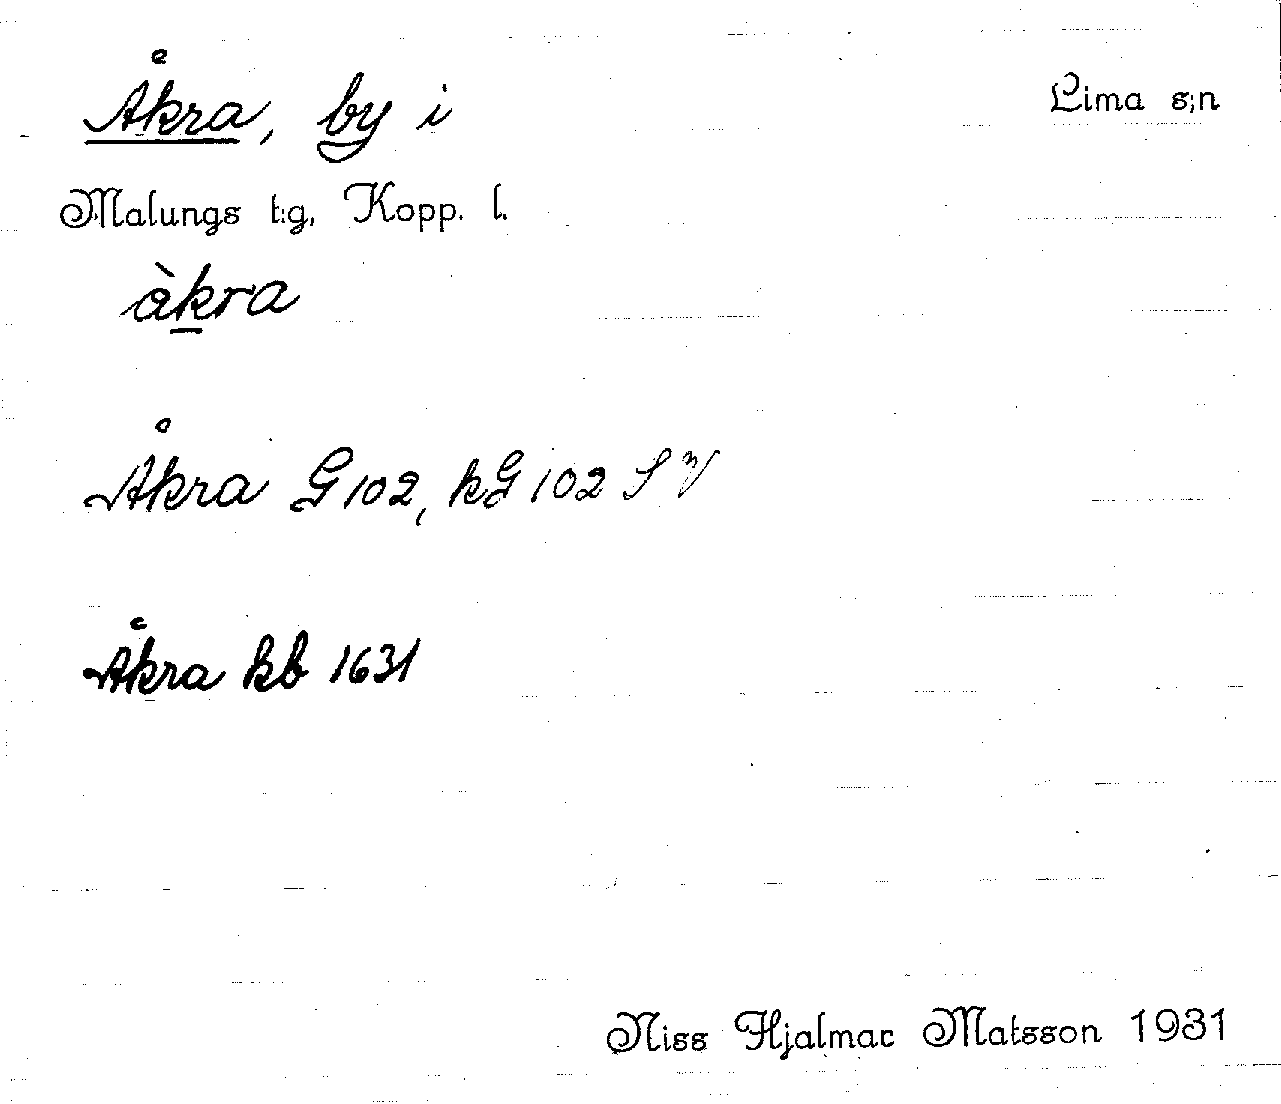 Åkra, by i Lima s:n
Malungs t:g, Kopp. l.
àkra
Åkra G 102, kG 102 S V
Åkra kb 1631
Niss Hjalmar Matsson 1931